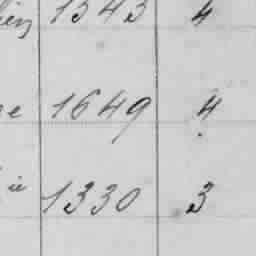 1343 4
1649 4
1330 3